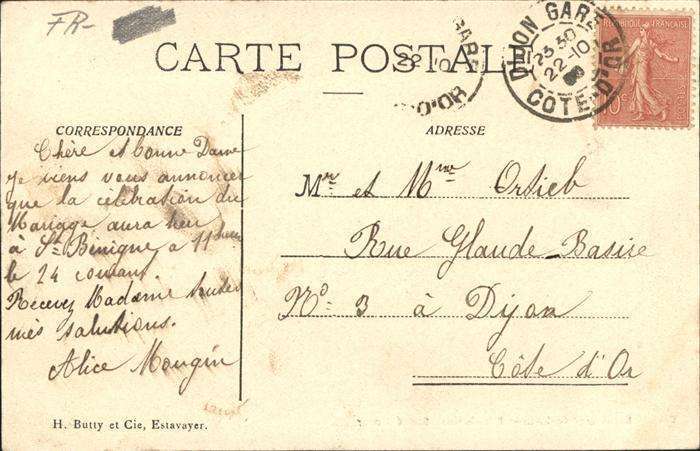 FR-
CARTE POSTALE
GARE
22 10
D'OR
DIJON GARE
23 30
22-10
COTE-D'OR
REPUBLIQUE FRANÇAISE
10c
CORRESPONDANCE
ADRESSE
Chère et bonne Dame
je viens vous annoncer
que la célébration du
Mariage aura lieu
à St Bénigne a 11 heures
le 24 courant.
Recevez Madame toutes
mes salutions.
Alice Mougin
Mr et Mme Ortieb
Rue Glaude-Basire
No- 3 à Dijon
Côte d'Or
H. Butty et Cie, Estavayer.